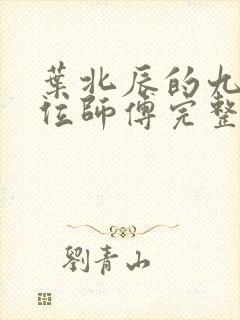 葉北辰的九
位師傅完整
劉青山